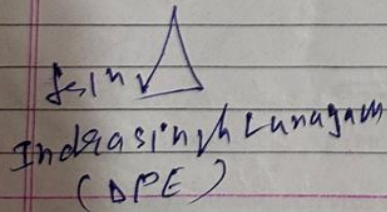 Indrasinh Lunagam
(DPE)